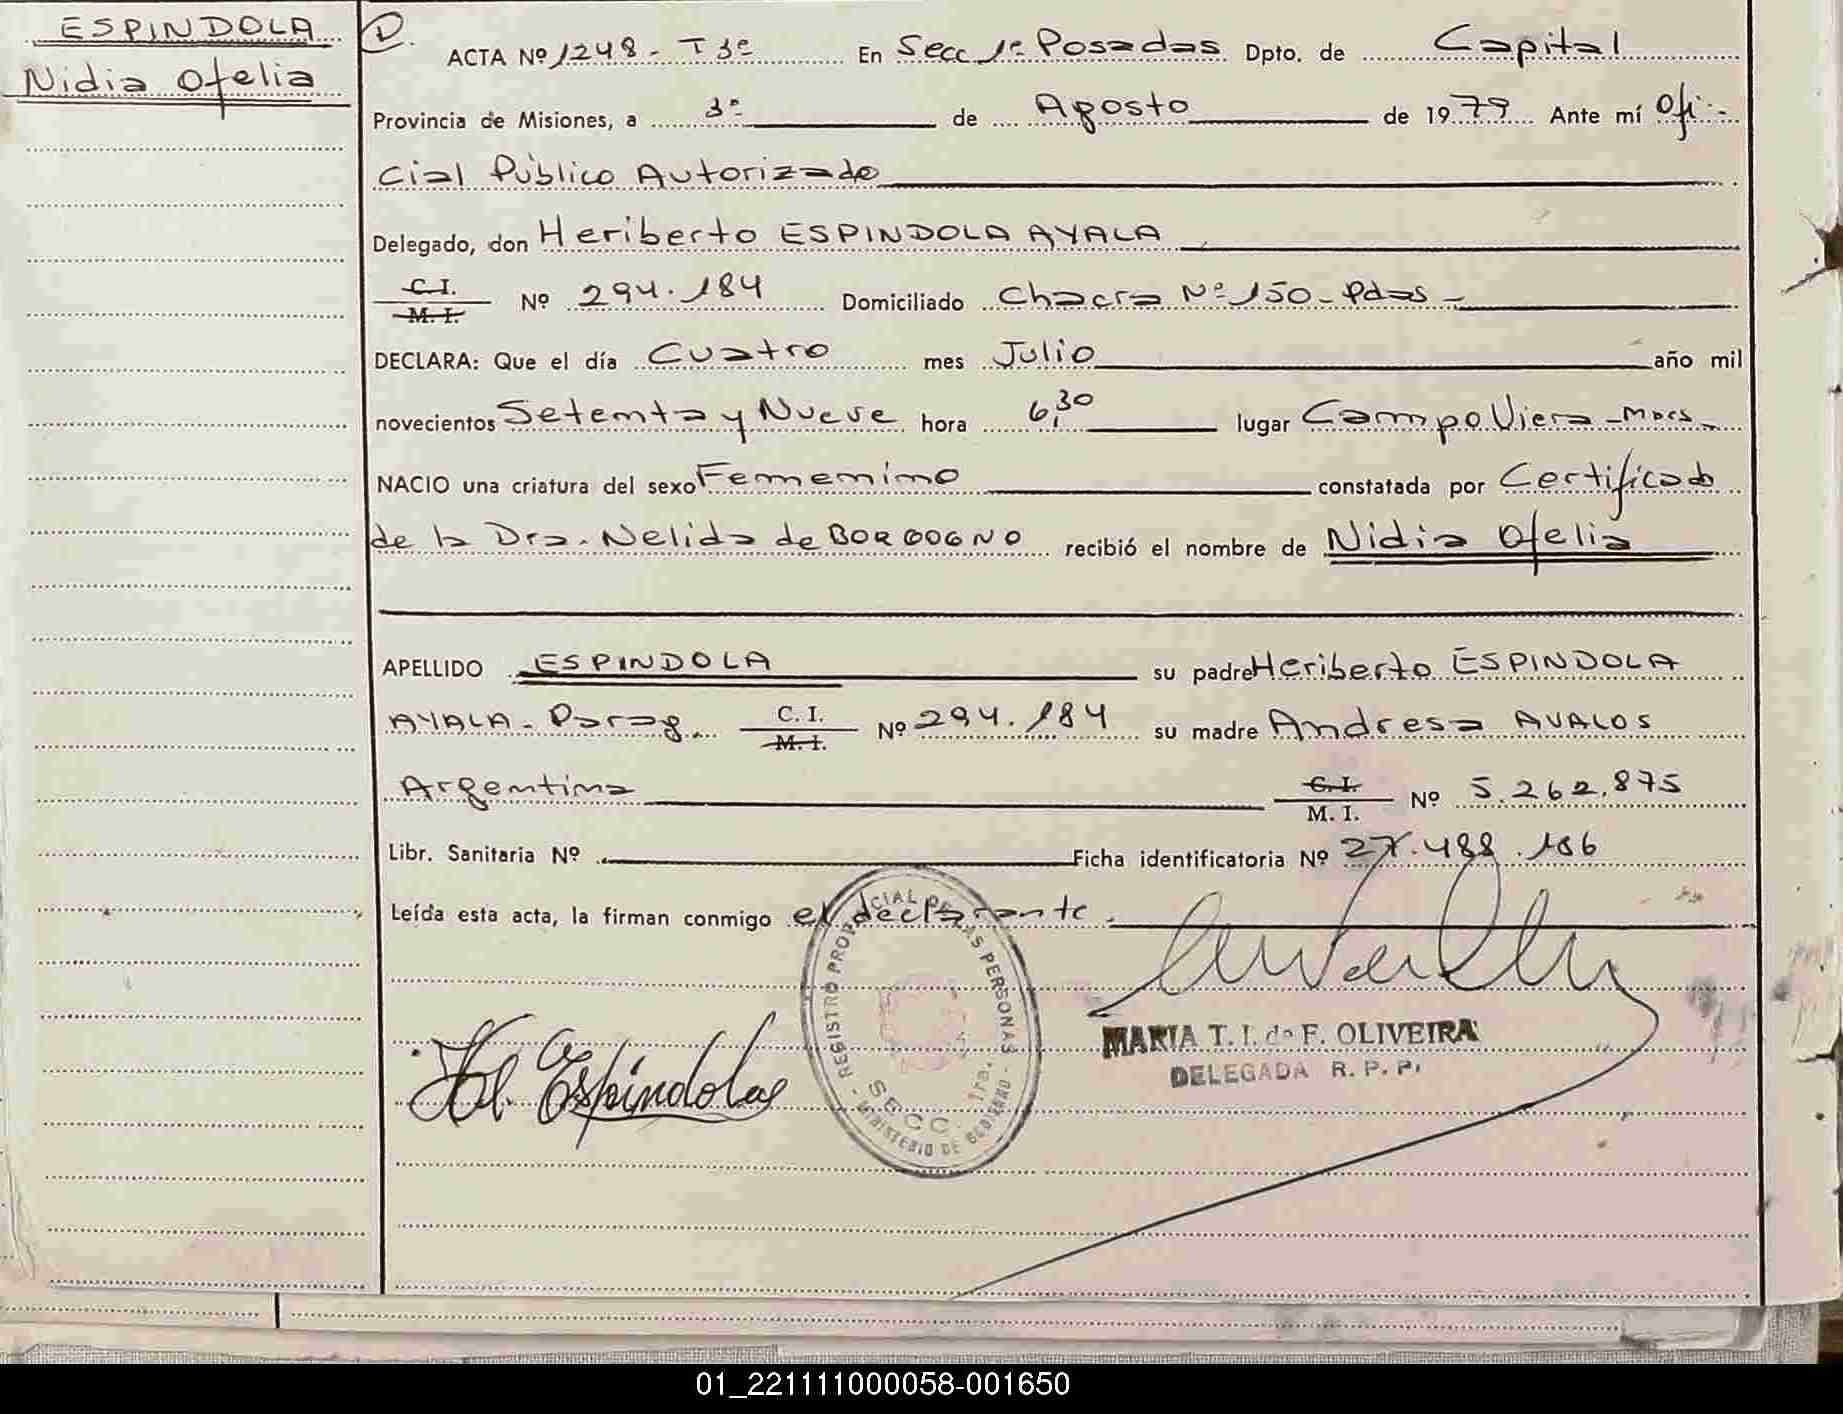 ESPINDOLA
Nidia Ofelia
D.
ACTA Nº 1248 - T 3º En Secc 1º Posadas Dpto. de Capital
Provincia de Misiones, a 3º de Agosto de 1979 Ante mí Ofi-
cial Público Autorizado
Delegado, don Heriberto ESPINDOLA AYALA
C.I. M.I. Nº 294.184 Domiciliado Chacra Nº 150 - Pdas -
DECLARA: Que el día Cuatro mes Julio año mil
novecientos Setenta y Nueve hora 6,30 lugar Campo Viera - Mnes -
NACIO una criatura del sexo Femenino constatada por Certificado
de la Dra. Nelida de BORGOGNO recibió el nombre de Nidia Ofelia
APELLIDO ESPINDOLA su padre Heriberto ESPINDOLA
AYALA - Parag. C. I. M. I. Nº 294.184 su madre Andresa AVALOS
Argentina C.I. M. I. Nº 5.262.875
Libr. Sanitaria Nº Ficha identificatoria Nº 27.488.186
Leída esta acta, la firman conmigo el declarante.
REGISTRO PROVINCIAL DE LAS PERSONAS
SECC. 1ra.
MINISTERIO DE GOBIERNO
H. Espindola
MARIA T. I. de F. OLIVEIRA
DELEGADA R. P. P.
01_221111000058-001650